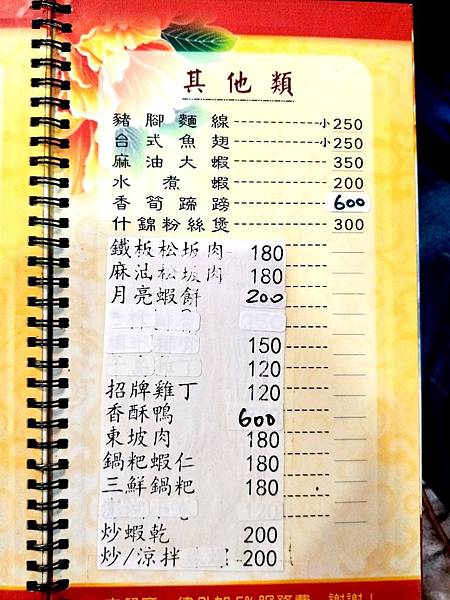 其他類
豬腳麵線 小250
台式魚翅 小250
麻油大蝦 350
水煮蝦 200
香筍蹄膀 600
什錦粉絲煲 300
鐵板松坂肉 180
麻油松坂肉 180
月亮蝦餅 200
150
120
招牌雞丁 120
香酥鴨 600
東坡肉 180
鍋粑蝦仁 180
三鮮鍋粑 180
炒蝦乾 200
炒/涼拌 200
5%服務費 謝謝！